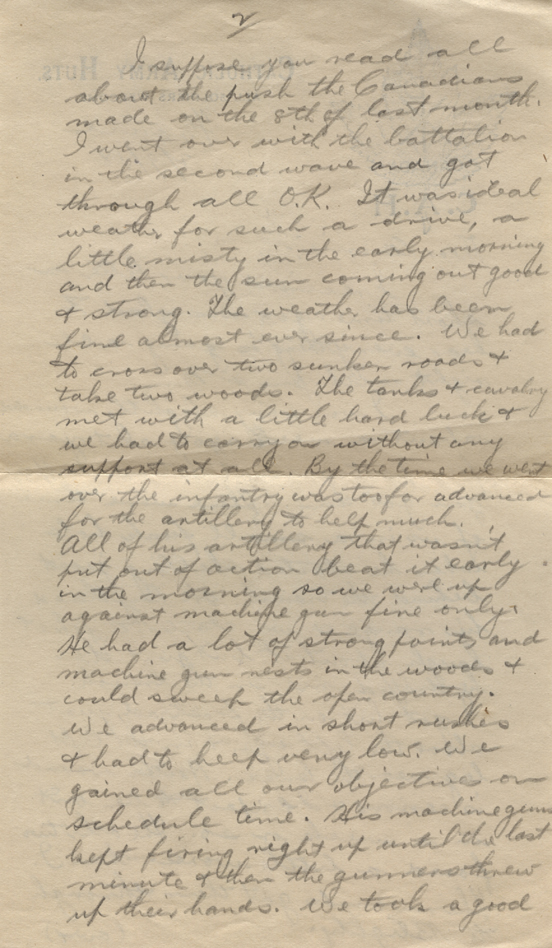 2
I suppose you read all
about the push the Canadians
made on the 8th of last month.
I went over with the battalion
in the second wave and got
through all O.K. It was ideal
weather for such a drive, a
little misty in the early morning
and then the sun coming out good
& strong. The weather has been
fine almost ever since. We had
to cross over two sunken roads &
take two woods. The tanks & cavalry
met with a little hard luck &
we had to carry on without any
support at all. By the time we went
over the infantry was too far advanced
for the artillery to help much.
All of his artillery that wasn't
put out of action beat it early
in the morning so we were up
against machine gun fire only.
He had a lot of strong points and
machine gun nests in the woods &
could sweep the open country.
We advanced in short rushes
& had to keep very low. We
gained all our objectives on
schedule time. His machine guns
kept firing right up until the last
minute & then the gunners threw
up their hands. We took a good